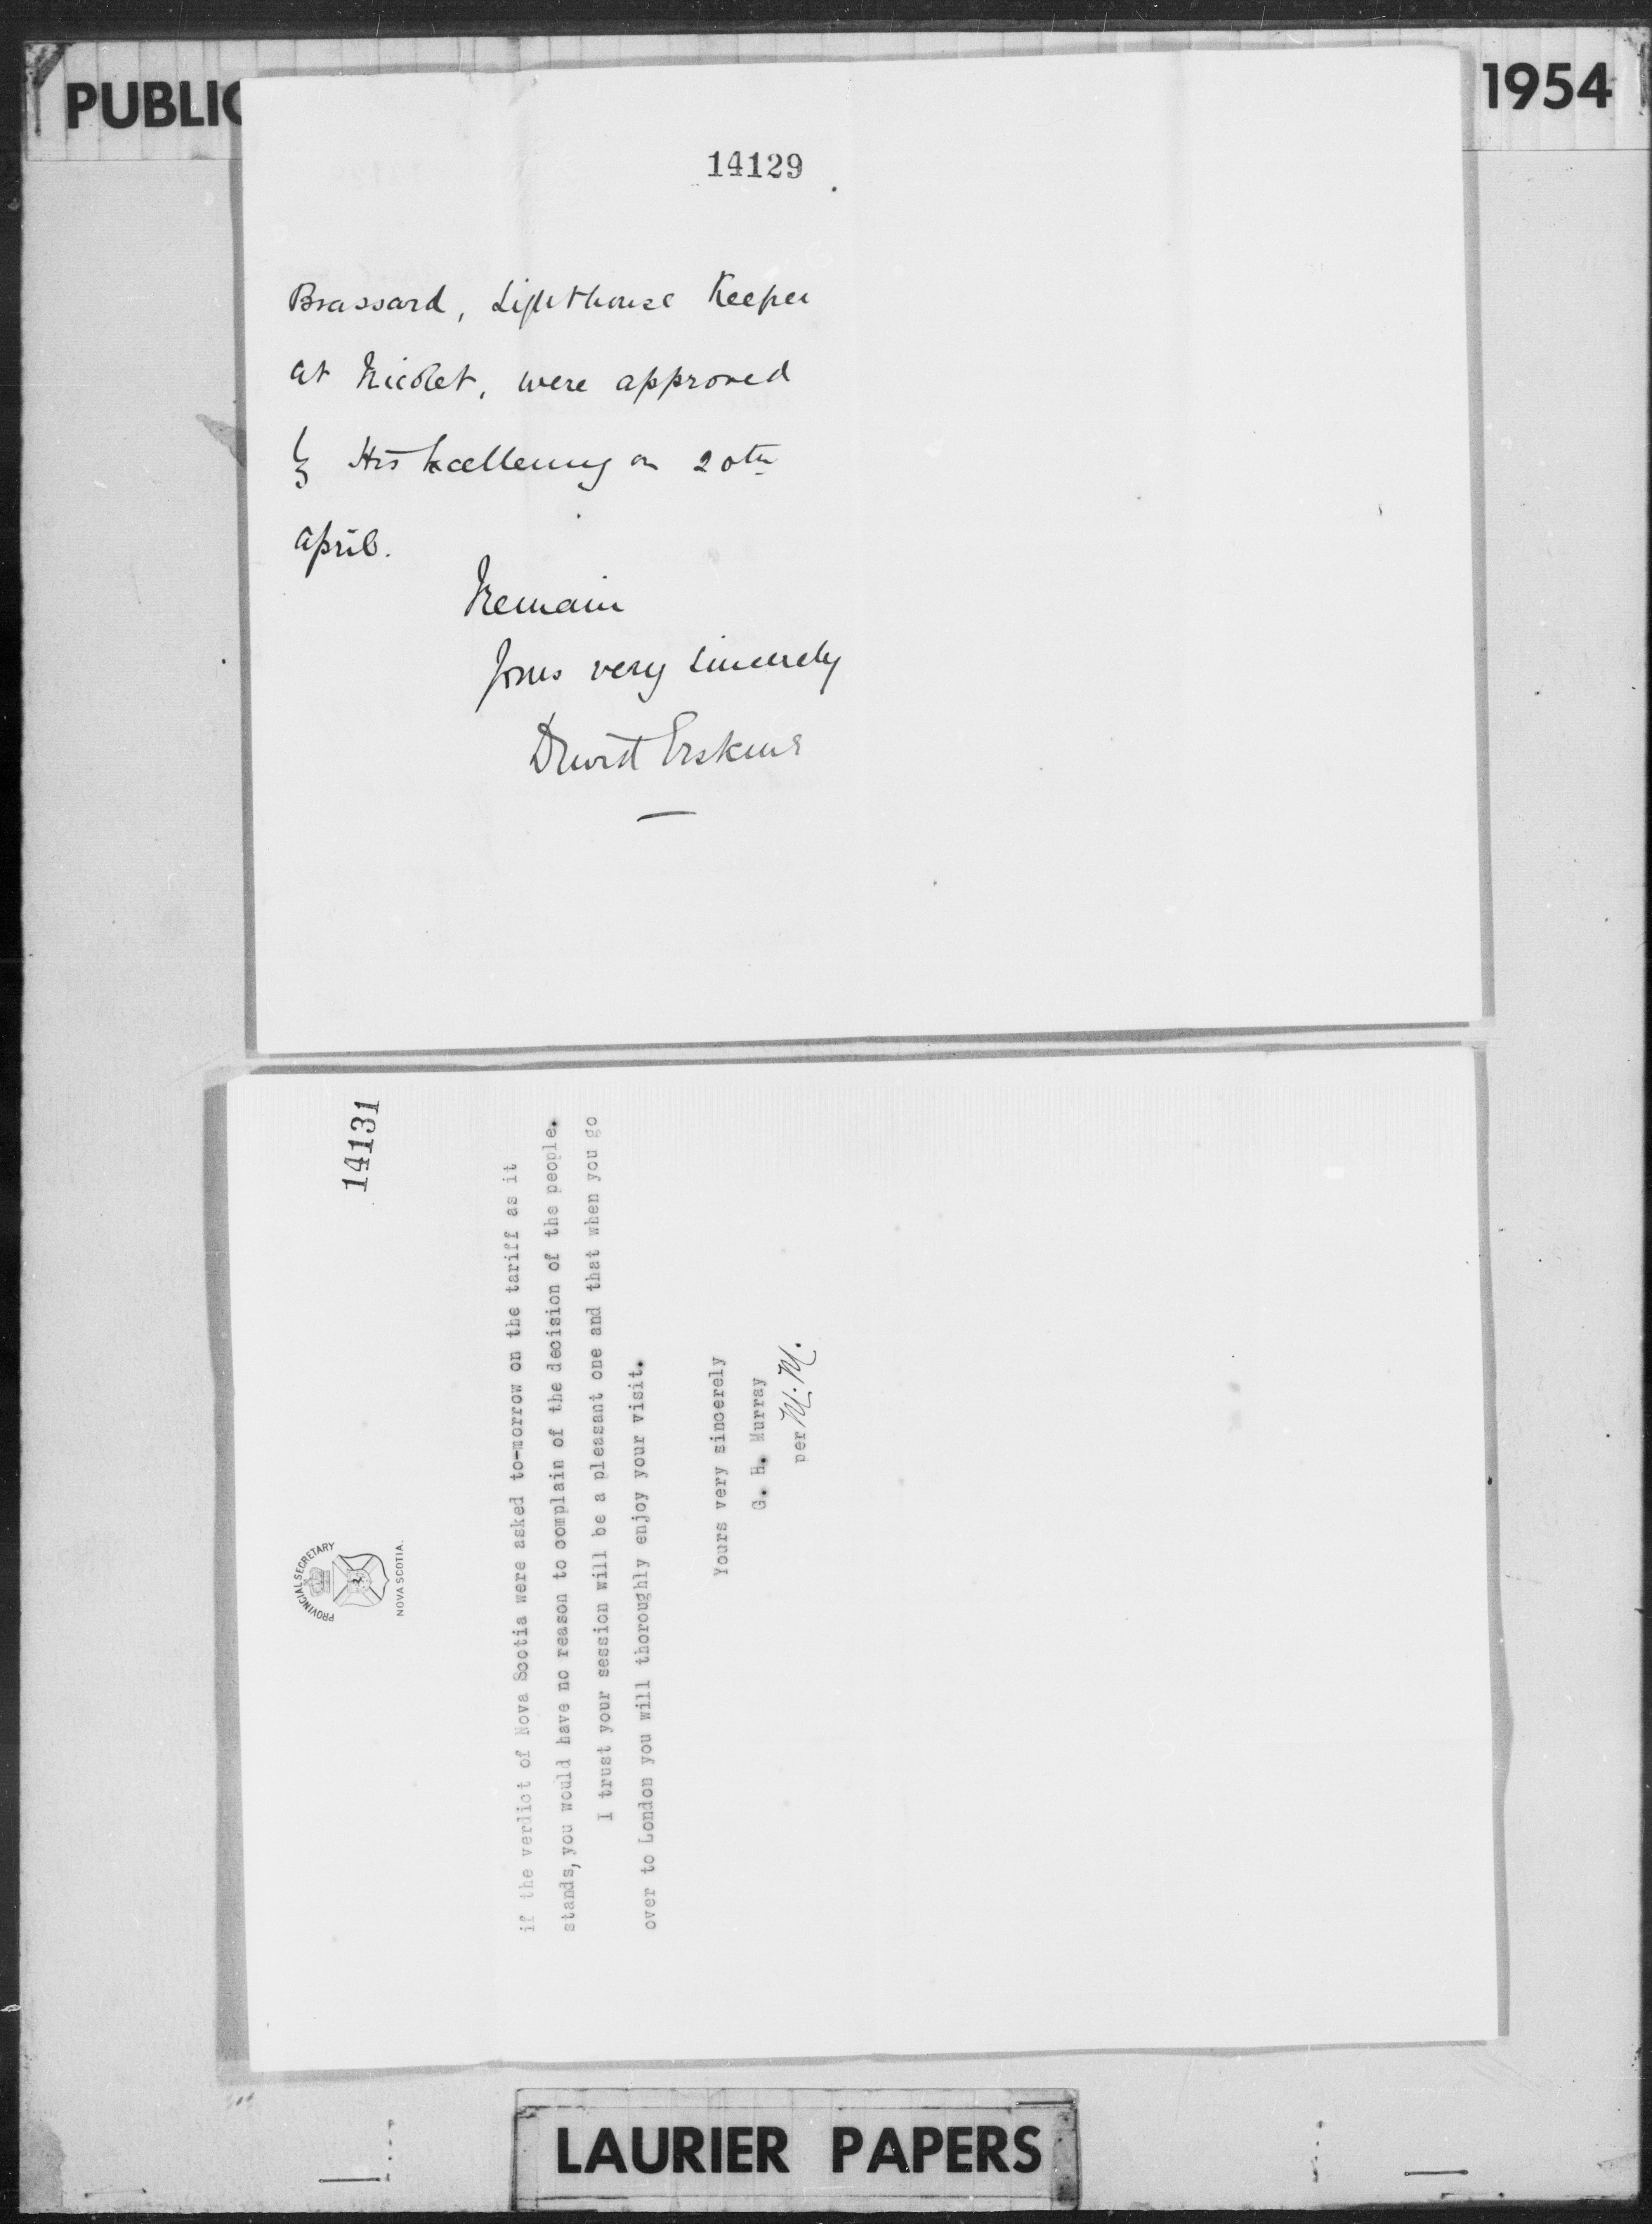 PUBLIC
1954
14129
Brassard, Lighthouse Keeper
at Nicolet, were approved
by His Excellency on 20th
April.
Remain
Yours very sincerely
David Erskine
14131
PROVINCIAL SECRETARY
NOVA SCOTIA.
if the verdict of Nova Scotia were asked to-morrow on the tariff as it
stands, you would have no reason to complain of the decision of the people.
I trust your session will be a pleasant one and that when you go
over to London you will thoroughly enjoy your visit.
Yours very sincerely
G. H. Murray
per M. M.
LAURIER PAPERS